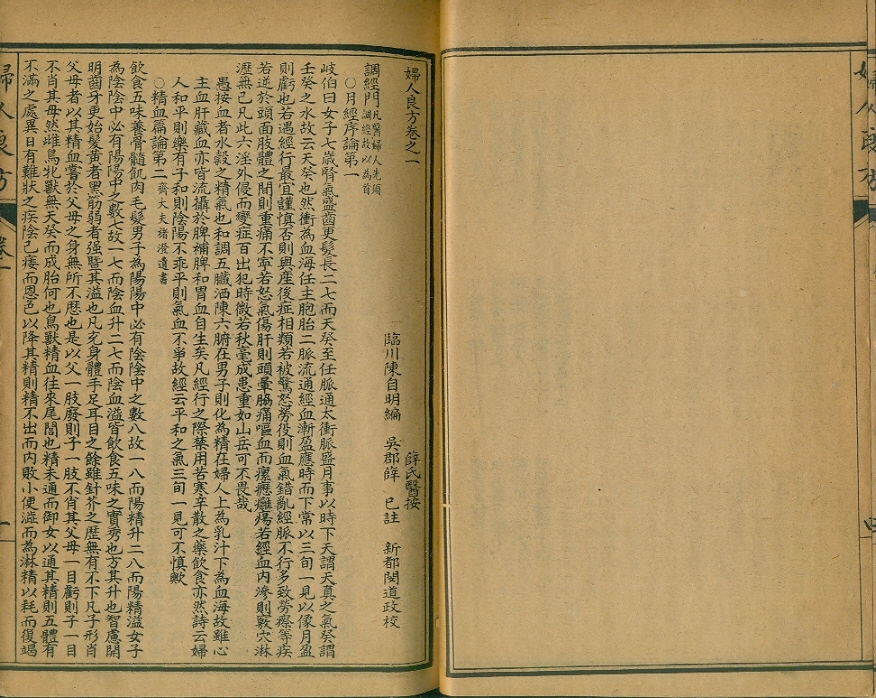 婦人良方卷之一
薛氏醫按
臨川陳自明編　吳郡薛　已註　新都閔道政校
調經門凡醫婦人先須調經故以為首
○月經序論第一
岐伯曰女子七歲腎氣盛齒更髮長二七而天癸至任脈通太衝脈盛月事以時下天謂天真之氣癸謂
壬癸之水故云天癸也然衝為血海任主胞胎二脈流通經血漸盈應時而下常以三旬一見以像月盈
則虧也若遇經行最宜謹慎否則與產後症相類若被驚怒勞役則血氣錯亂經脈不行多致勞瘵等疾
若逆於頭面肢體之間則重痛不寧若怒氣傷肝則頭暈脇痛嘔血而瘰癧癰瘍若經血內滲則竅穴淋
瀝無已凡此六淫外侵而變症百出犯時微若秋毫成患重如山岳可不畏哉
愚按血者水穀之精氣也和調五臟洒陳六腑在男子則化為精在婦人上為乳汁下為血海故雖心
主血肝藏血亦皆流攝於脾補脾和胃血自生矣凡經行之際禁用苦寒辛散之藥飲食亦然詩云婦
人和平則樂有子和則陰陽不乖平則氣血不爭故經云平和之氣三旬一見可不慎歟
○精血篇論第二齊大夫褚澄遺書
飲食五味養骨髓飢肉毛髮男子為陽陽中必有陰陰中之數八故一八而陽精升二八而陽精溢女子
為陰陰中必有陽陽中之數七故一七而陰血升二七而陰血溢皆飲食五味之實秀也方其升也智慮開
明齒牙更始髮黃者黑筋弱者强暨其溢也凡充身體手足耳目之餘雖針芥之歷無有不下凡子形肖
父母者以其精血嘗於父母之身無所不歷也是以父一肢廢則子一肢不肖其父母一目虧則子一目
不肖其母然雌鳥牝獸無天癸而成胎何也鳥獸精血往來尾閭也精未通而御女以通其精則五體有
不滿之處異日有難狀之疾陰已痿而思色以降其精則精不出而內敗小便澁而為淋精以耗而復竭
婦人良方
卷一
一
婦人良方
四